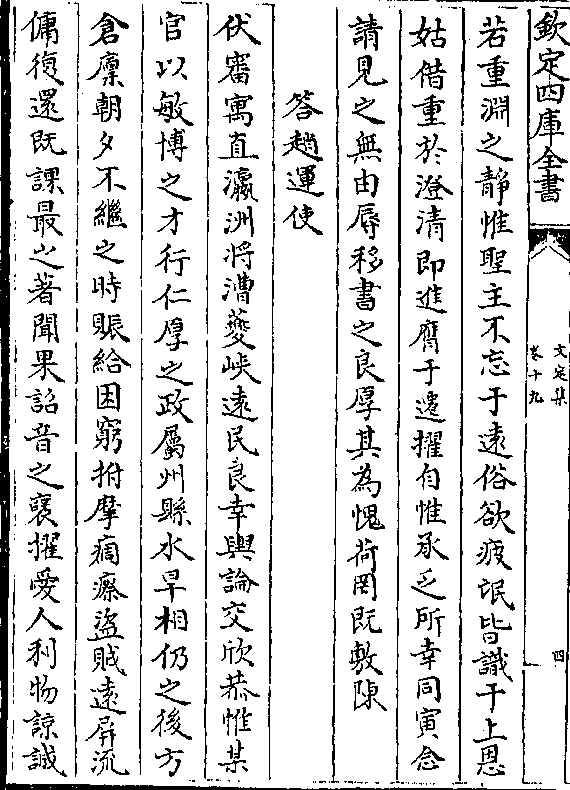 欽定四庫全書
文定集
卷十九
四
若重淵之靜惟聖主不忘于遠俗欲疲氓皆識于上恩
姑借重於澄清即進膺于遷擢自惟承乏所幸同寅念
請見之無由辱移書之良厚其為愧荷罔既敷陳
答趙運使
伏審寓直瀛洲將漕夔峽遠民良幸輿論交欣恭惟某
官以敏博之才行仁厚之政屬州縣水旱相仍之後方
倉廩朝夕不繼之時賑給困窮拊摩痌瘝盜賊遠屏流
傭復還既課最之著聞果詔音之襃擢愛人利物諒誠